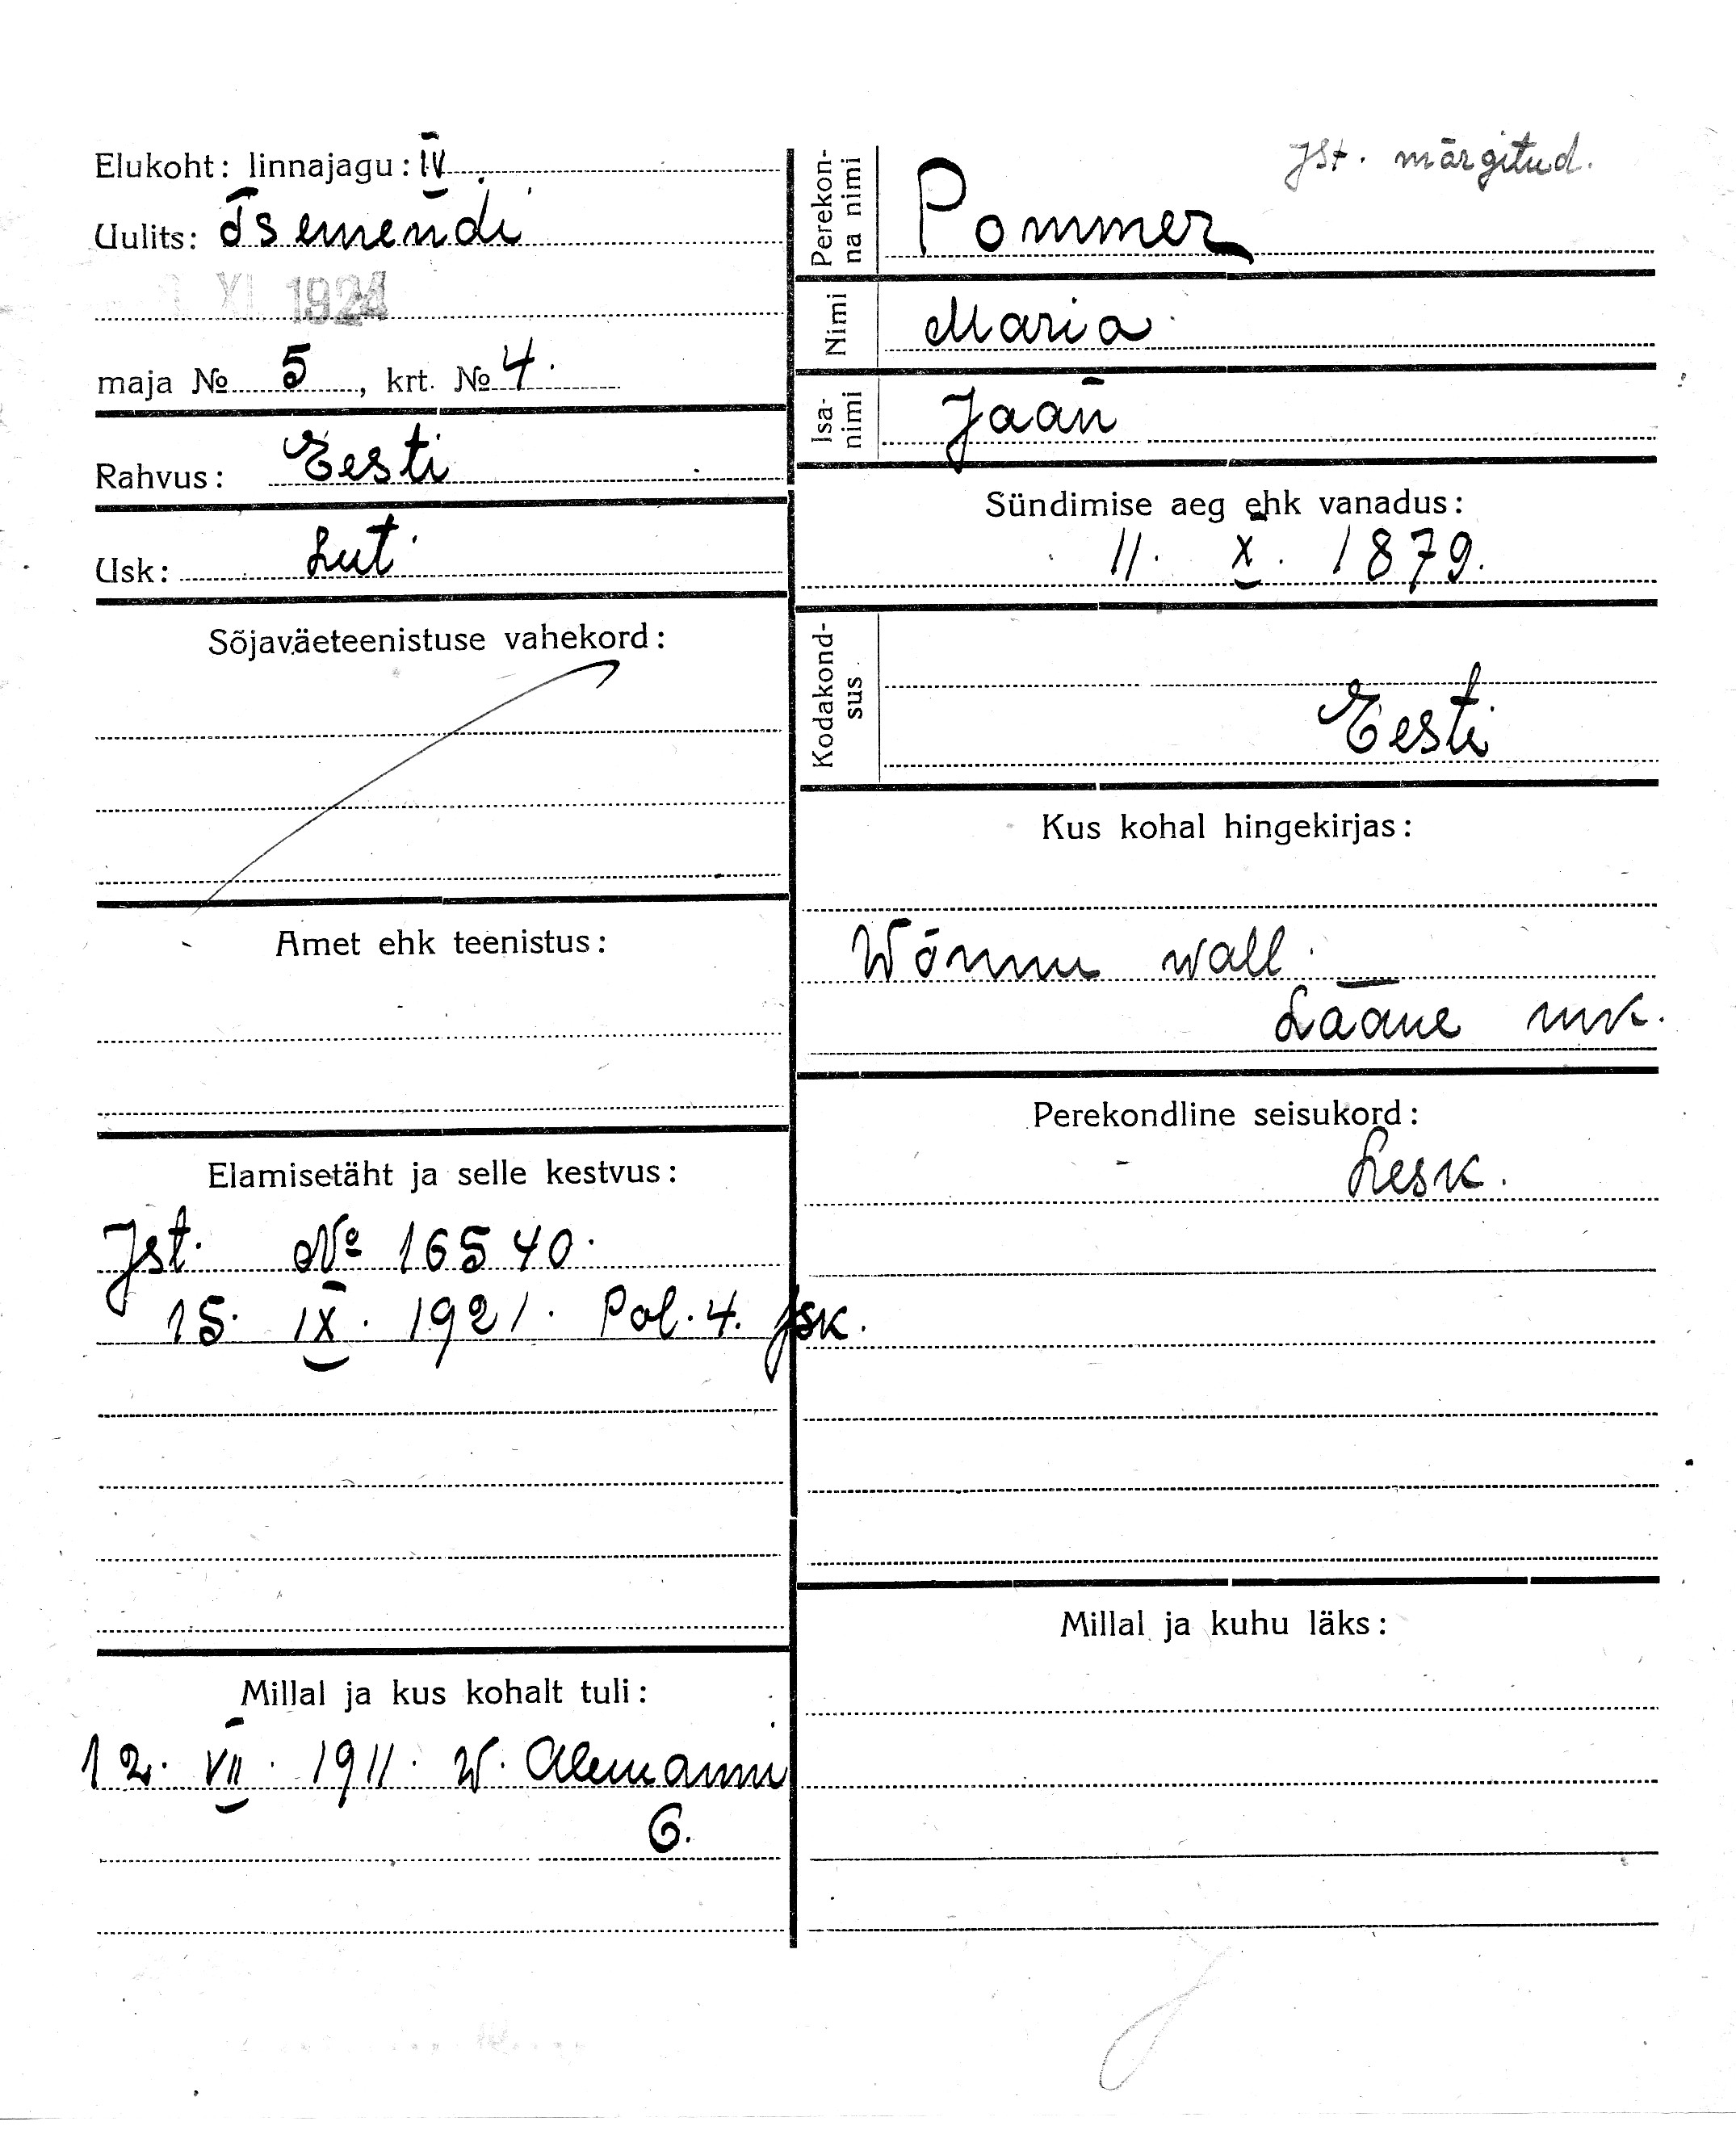 Elukoht: linnajagu: IV.
Uulits: Tsemendi
XI 1924
maja № 5, krt. № 4.
Rahvus: Eesti
Usk: Lut.
Sõjaväeteenistuse vahekord:
Amet ehk teenistus:
Elamisetäht ja selle kestvus:
Jst. № 16540.
15. IX. 1921. Pol. 4. jsk.
Millal ja kus kohalt tuli:
12. VII. 1911. W. Alemanni
6.
Jst. märgitud.
Perekon-
na nimi
Pommer
Nimi
Maria
Isa-
nimi
Jaan
Sündimise aeg ehk vanadus:
11. X. 1879.
Kodakond-
sus
Eesti
Kus kohal hingekirjas:
Wõnnu wall.
Lääne mk.
Perekondline seisukord:
Lesk.
Millal ja kuhu läks: